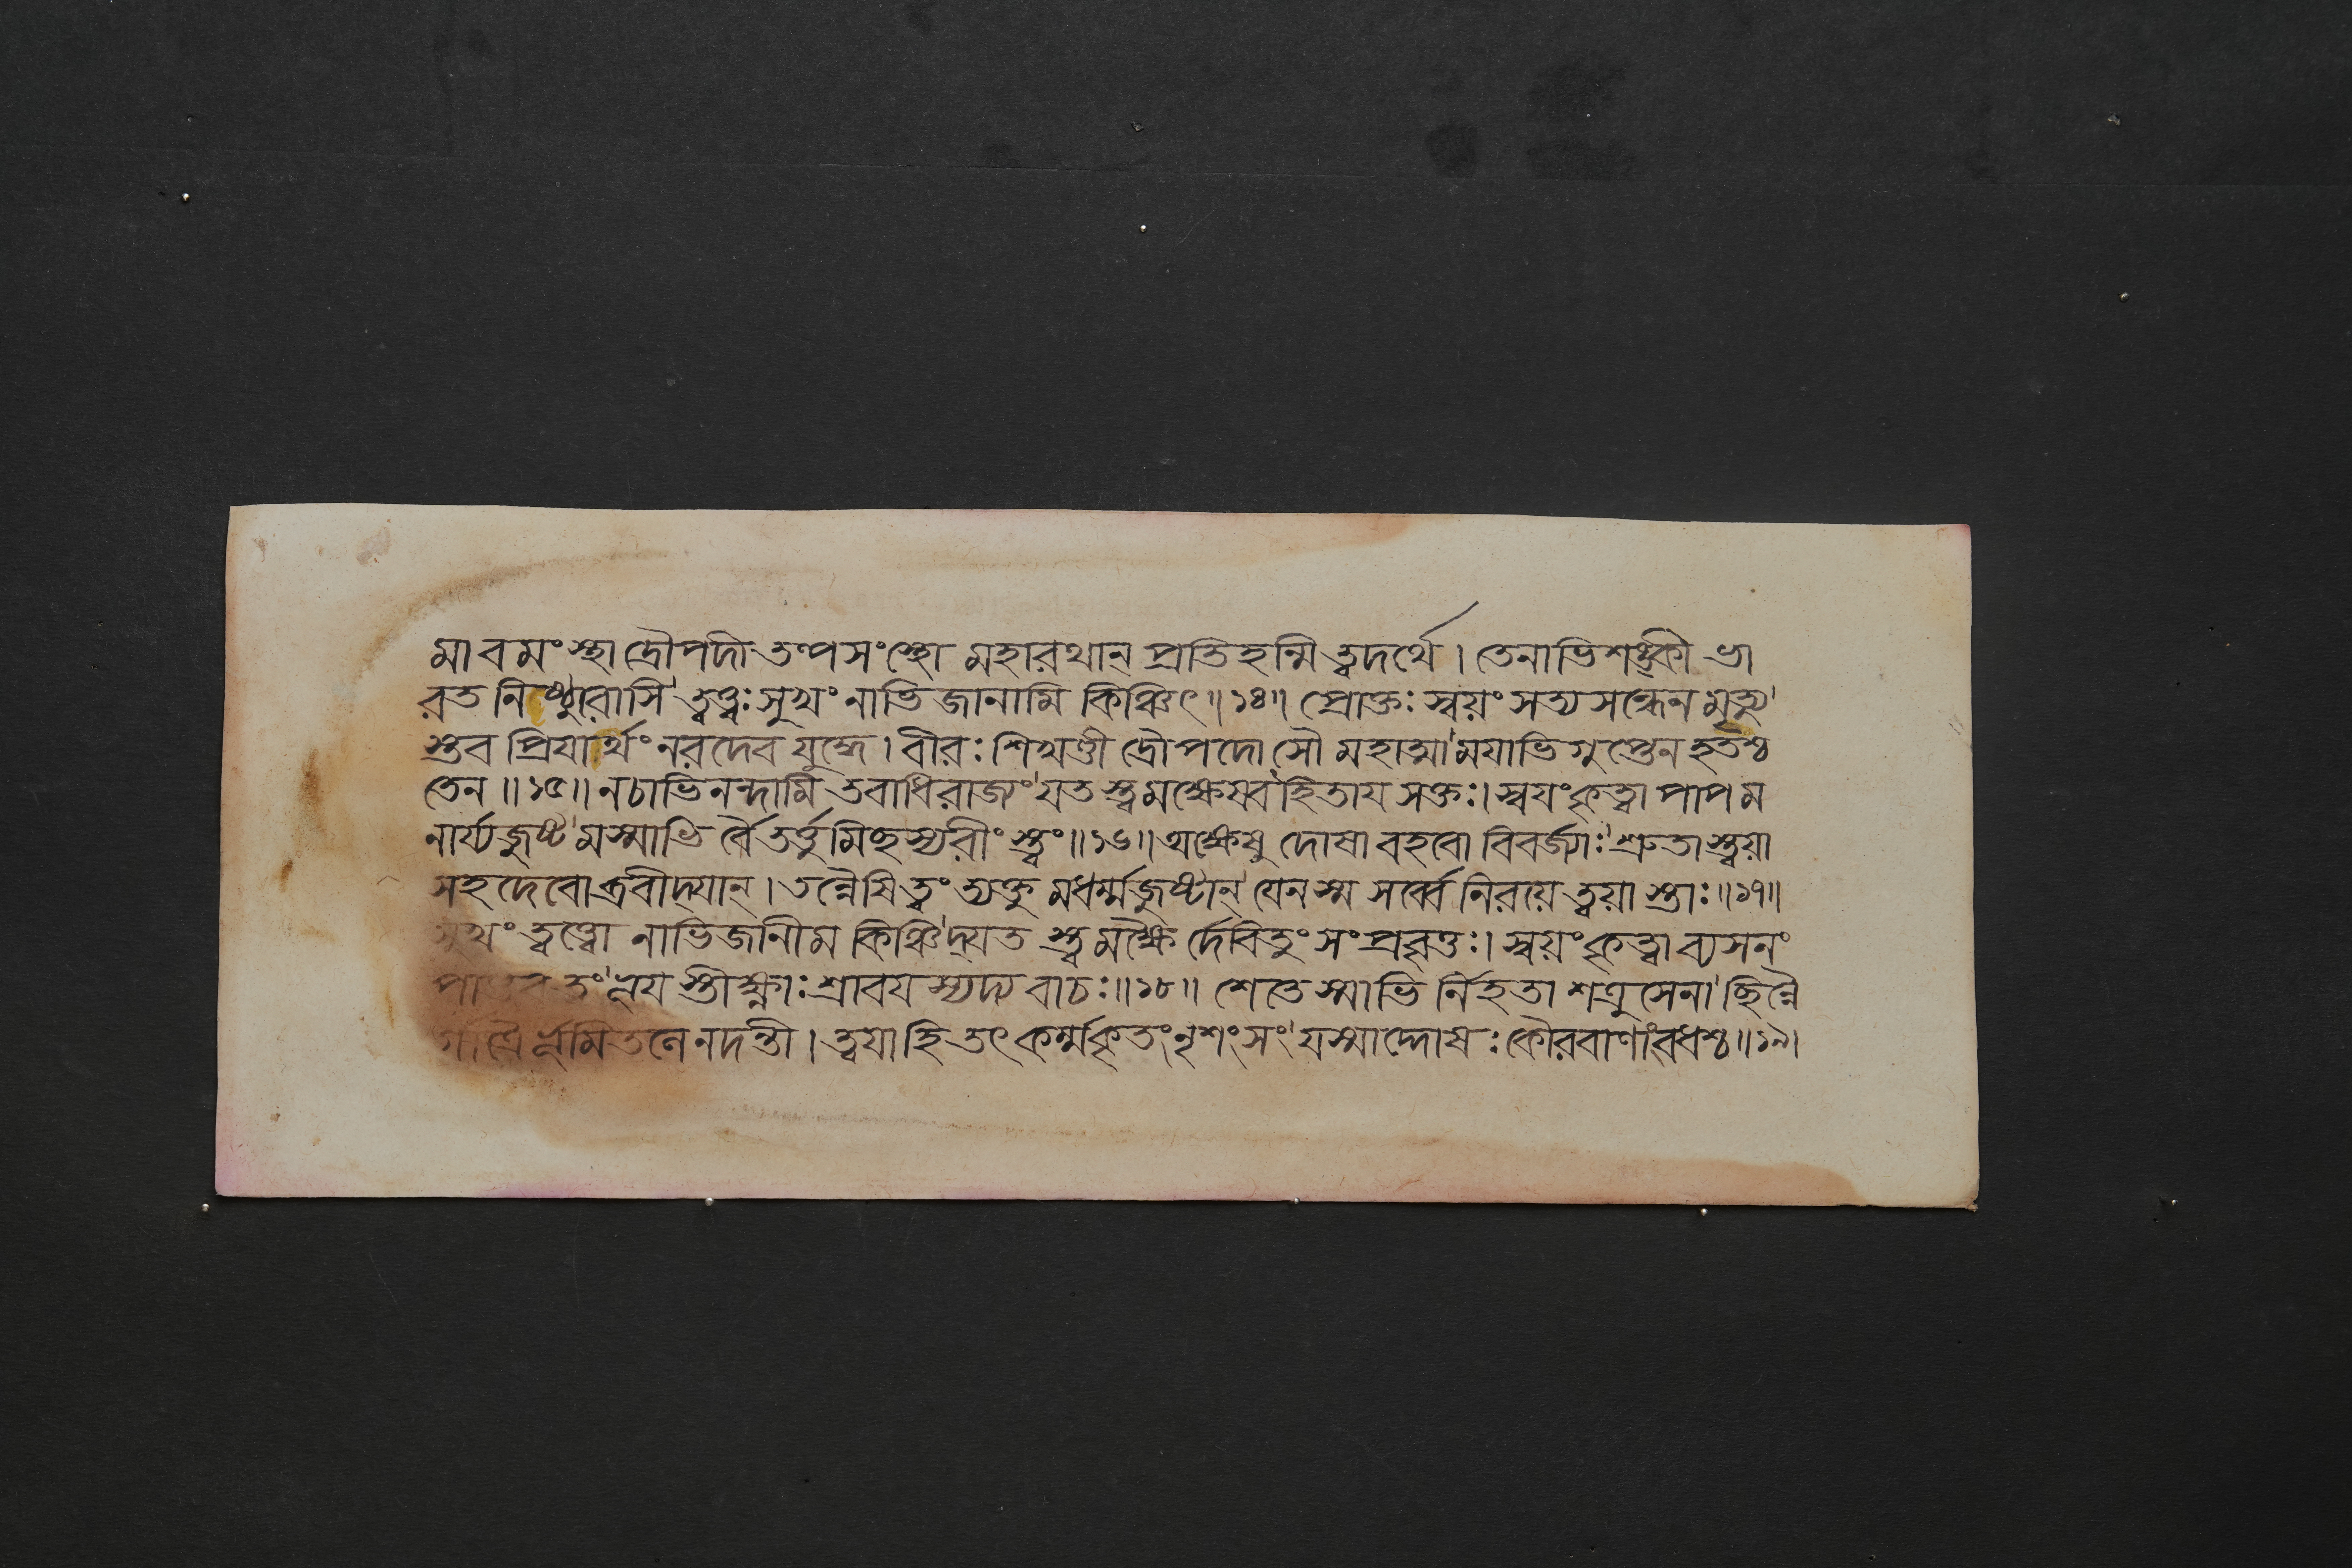 মাবমংস্থা দ্রৌপদী তল্পসংস্থো মহারথান্ প্রতিহন্মি ত্বদর্থে। তেনাভিশঙ্কী ভা
রত নিষ্ঠুরাসি ত্বত্ত্বঃ সুখং নাভিজানামি কিঞ্চিৎ॥১৪॥ প্রোক্তঃ স্বয়ং সত্যসন্ধেন মৃত্যু
স্তব প্রিযার্থং নরদেব যুদ্ধে। বীরঃ শিখণ্ডী দ্রৌপদো সৌ মহাত্মা মযাভিগুপ্তেন হতশ্চ
তেন॥১৫॥ ন চাভিনন্দামি তবাধিরাজ্যং যতস্ত্বমক্ষেষ্বহিতায সক্তঃ। স্বযং কৃত্বা পাপম
নার্য্যজুষ্ট মস্মাভি র্ব্বৈ তর্ত্তুমিচ্ছস্যরীং স্ত্বং॥১৬॥ অক্ষেষু দোষা বহবো বিবর্জ্যাঃ শ্রুতাস্ত্বয়া
সহদেবোব্রবীদ্যান্। তন্নৈষি ত্বং ত্যক্তু মধর্ম্মজুষ্টান্ যেন স্ম সর্ব্বে নিরয়ে ত্বয়া স্তাঃ॥১৭॥
সুখং ত্বত্ত্বো নাভিজানীম কিঞ্চিদ্যত স্ত্বমক্ষৈ র্দেবিতুং সংপ্রবৃত্তঃ। স্বয়ং কৃত্বা ব্যসনং
পাণ্ডব ত্বং ন্নয স্তীক্ষ্ণাঃ শ্রাবযস্যদ্য বাচঃ॥১৮॥ শেতে স্মাভি র্নিহতা শত্রুসেনা ছিন্নৈ
র্গাত্রৈ র্ভূমিতলে নদন্তী। ত্বযা হি তৎ কর্ম্ম কৃতং নৃশংসং যস্মাদ্দোষঃ কৌরবাণাং বধশ্চ॥১৯।